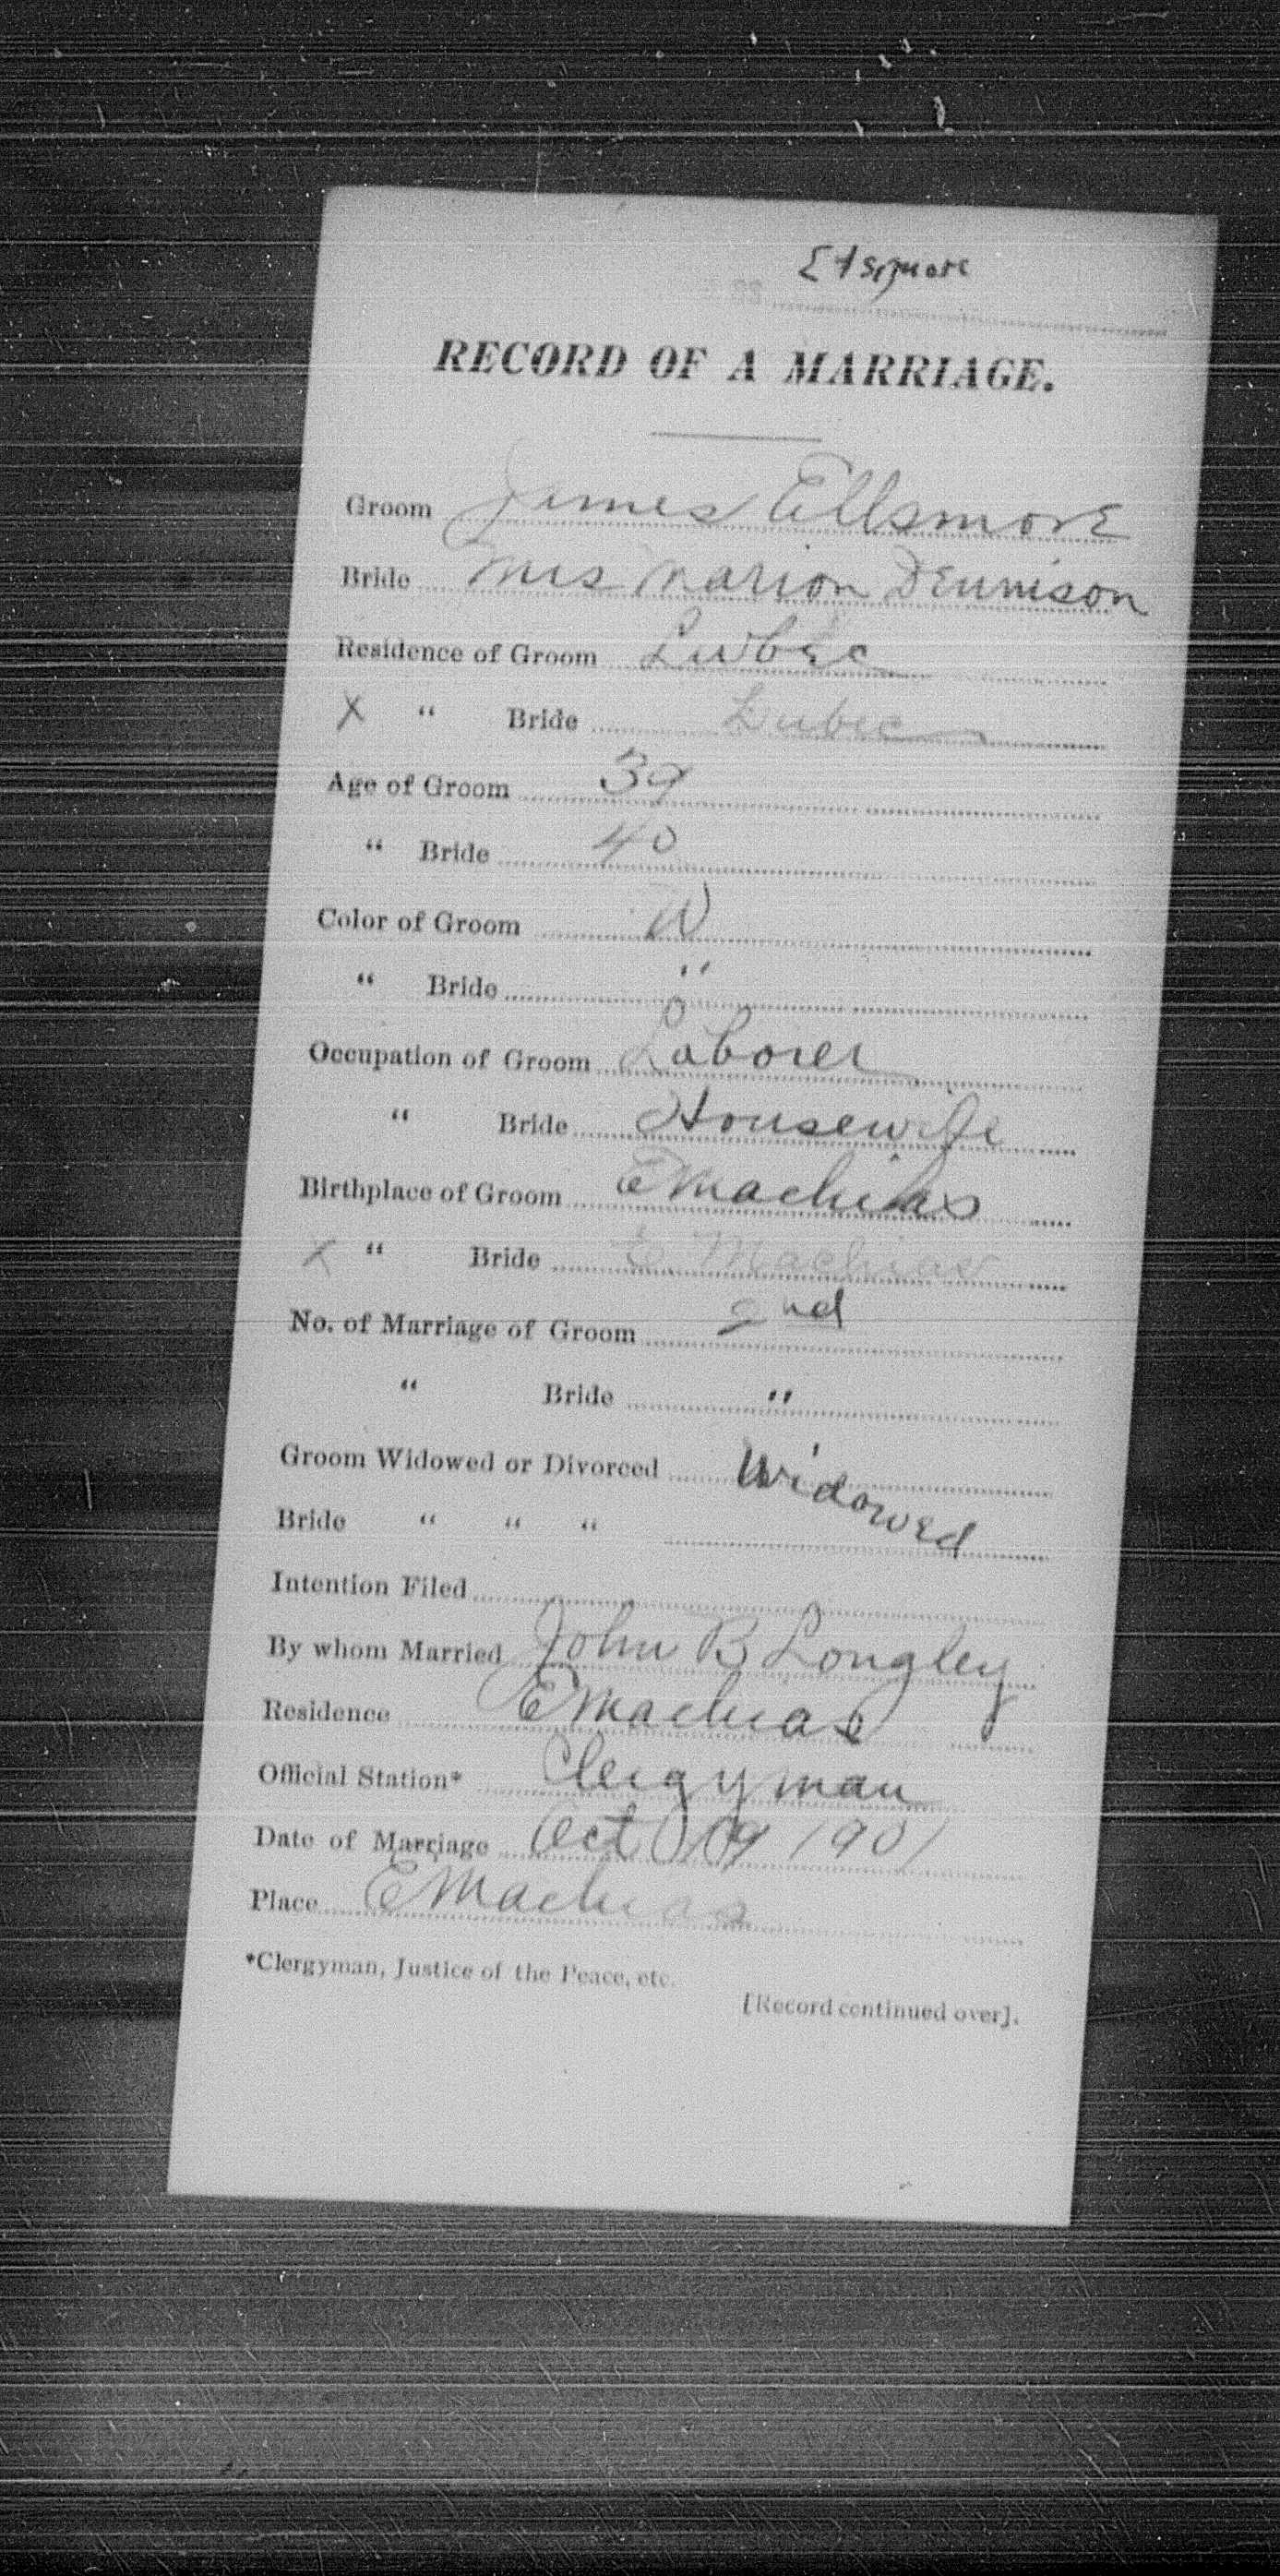 Elsmore
RECORD OF A MARRIAGE.
Groom James Ellsmore
Bride Mrs Marion Dennison
Residence of Groom Lubec
X " Bride Lubec
Age of Groom 39
" Bride 40
Color of Groom W
" Bride "
Occupation of Groom Laborer
" Bride Housewife
Birthplace of Groom E Machias
X " Bride E. Machias
No. of Marriage of Groom 2nd
" Bride "
Groom Widowed or Divorced Widowed
Bride " " "
Intention Filed
By whom Married John B Longley
Residence E Machias
Official Station* Clergyman
Date of Marriage Oct 19 1901
Place E Machias
*Clergyman, Justice of the Peace, etc.
[Record continued over].